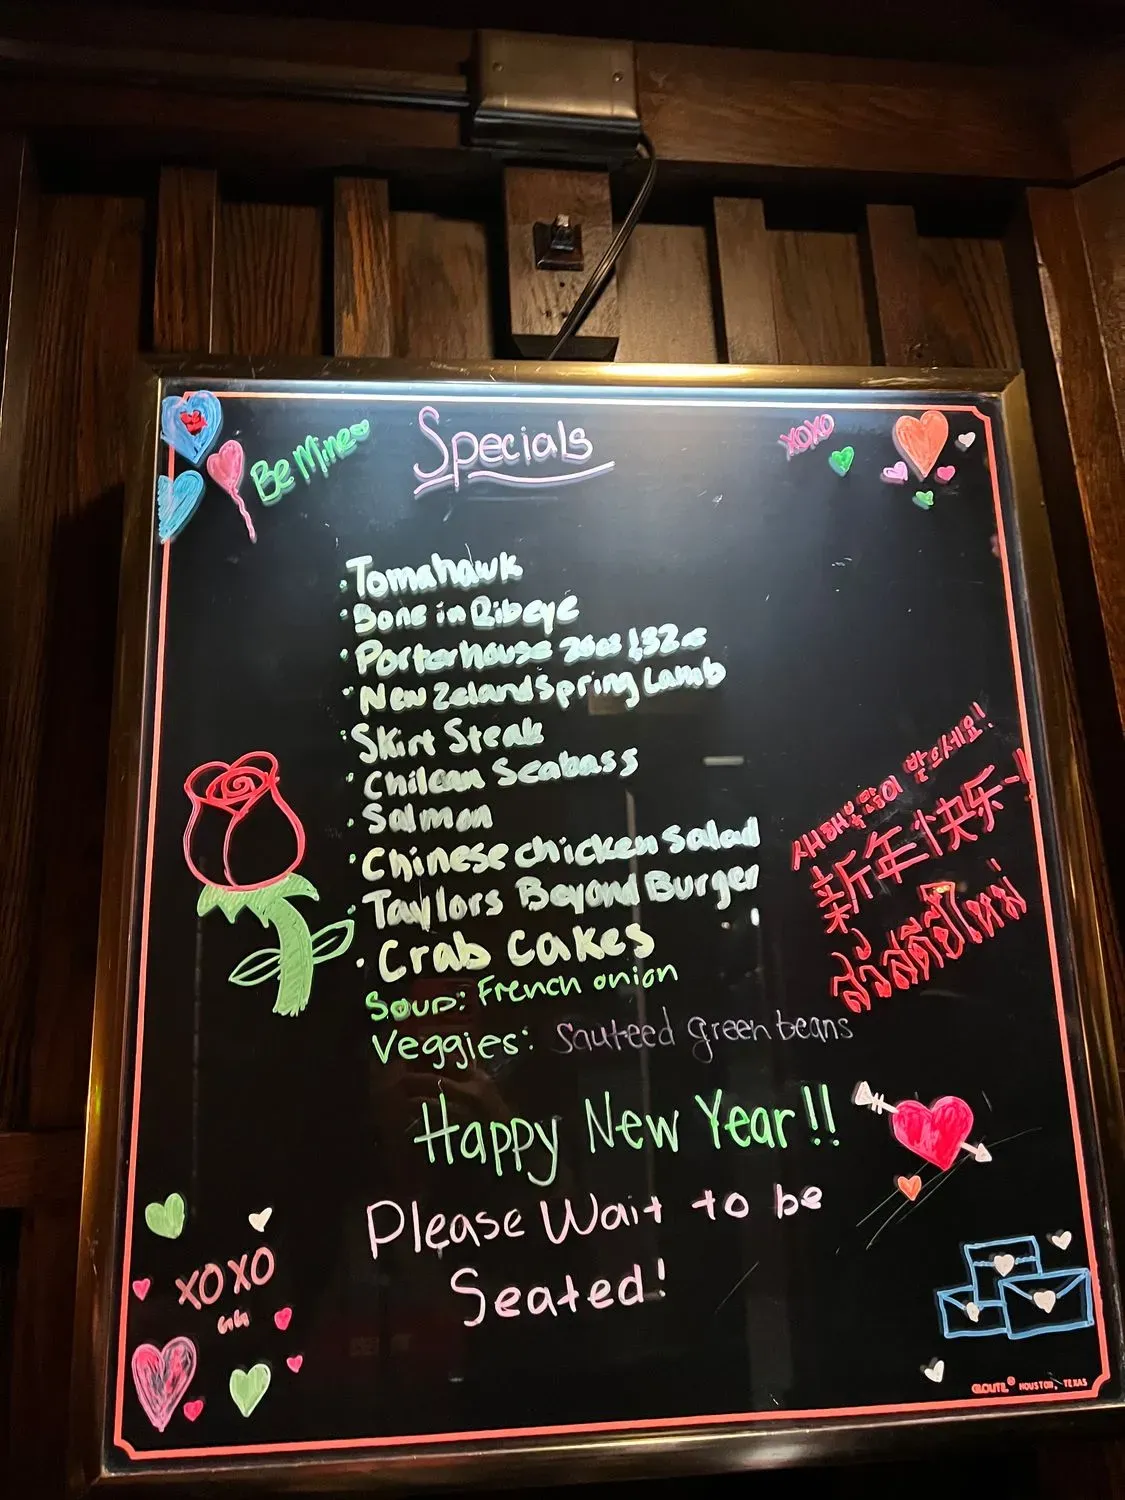 Be Mine
Specials
XOXO
Tomahawk
Bone in Ribeye
Porterhouse
New Zeland Spring Lamb
Skirt Steak
Chilean Seabass
Salmon
Chinese chicken Salad
Taylors Beyond Burger
Crab Cakes
Soup: French onion
Veggies: Sauteed green beans
새해 복 많이 받으세요!
新年快乐!!
สวัสดีปีใหม่
Happy New Year!!
Please Wait to be
Seated!
XOXO
HOUSTON, TEXAS